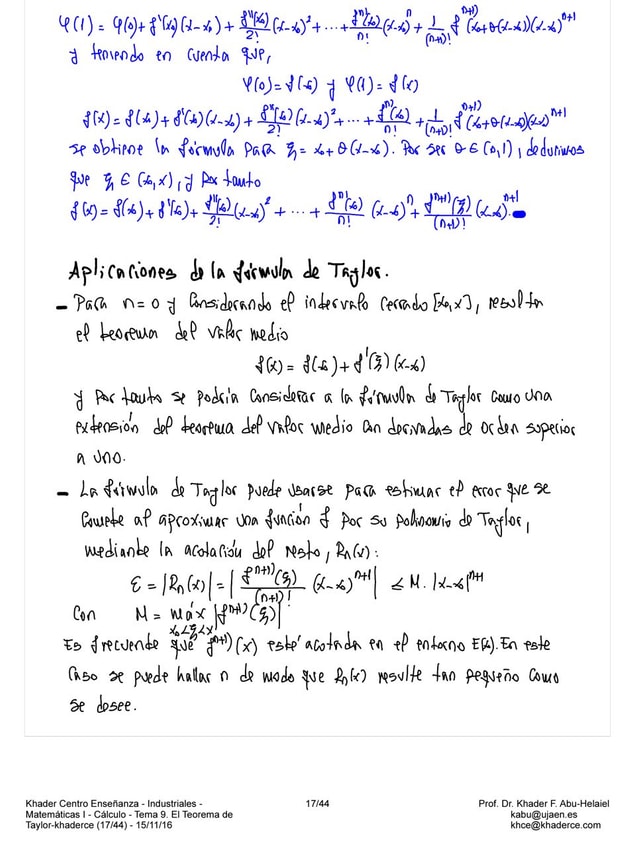 φ(1) = φ(0) + f'(x₀)(x-x₀) + f''(x₀)/2! (x-x₀)² + ... + fⁿ⁾(x₀)/n! (x-x₀)ⁿ + 1/(n+1)! fⁿ⁺¹⁾(x₀+θ(x-x₀))(x-x₀)ⁿ⁺¹
y teniendo en cuenta que,
φ(0) = f(x₀) y φ(1) = f(x)
f(x) = f(x₀) + f'(x₀)(x-x₀) + f''(x₀)/2! (x-x₀)² + ... + fⁿ⁾(x₀)/n! (x-x₀)ⁿ + 1/(n+1)! fⁿ⁺¹⁾(x₀+θ(x-x₀))(x-x₀)ⁿ⁺¹
se obtiene la fórmula para ξ = x₀ + θ(x-x₀). Por ser θ ∈ (0,1), deducimos
que ξ ∈ (x₀,x), y por tanto
f(x) = f(x₀) + f'(x₀) + f''(x₀)/2! (x-x₀)² + ... + fⁿ⁾(x₀)/n! (x-x₀)ⁿ + fⁿ⁺¹⁾(ξ)/(n+1)! (x-x₀)ⁿ⁺¹.
Aplicaciones de la fórmula de Taylor.
- Para n=0 y considerando el intervalo cerrado [x₀,x], resulta
el teorema del valor medio
f(x) = f(x₀) + f'(ξ)(x-x₀)
y por tanto se podría considerar a la fórmula de Taylor como una
extensión del teorema del valor medio con derivadas de orden superior
a uno.
- La fórmula de Taylor puede usarse para estimar el error que se
comete al aproximar una función f por su polinomio de Taylor,
mediante la acotación del resto, Rₙ(x):
ε = |Rₙ(x)| = |fⁿ⁺¹⁾(ξ)/(n+1)! (x-x₀)ⁿ⁺¹| ≤ M·|x-x₀|ⁿ⁺¹
Con M = máx |fⁿ⁺¹⁾(ξ)|
x₀<ξ<x
Es frecuente que fⁿ⁺¹⁾(x) esté acotada en el entorno E(x₀). En este
caso se puede hallar n de modo que Rₙ(x) resulte tan pequeño como
se desee.
Khader Centro Enseñanza - Industriales -
Matemáticas I - Cálculo - Tema 9. El Teorema de
Taylor-khaderce (17/44) - 15/11/16
17/44
Prof. Dr. Khader F. Abu-Helaiel
kabu@ujaen.es
khce@khaderce.com